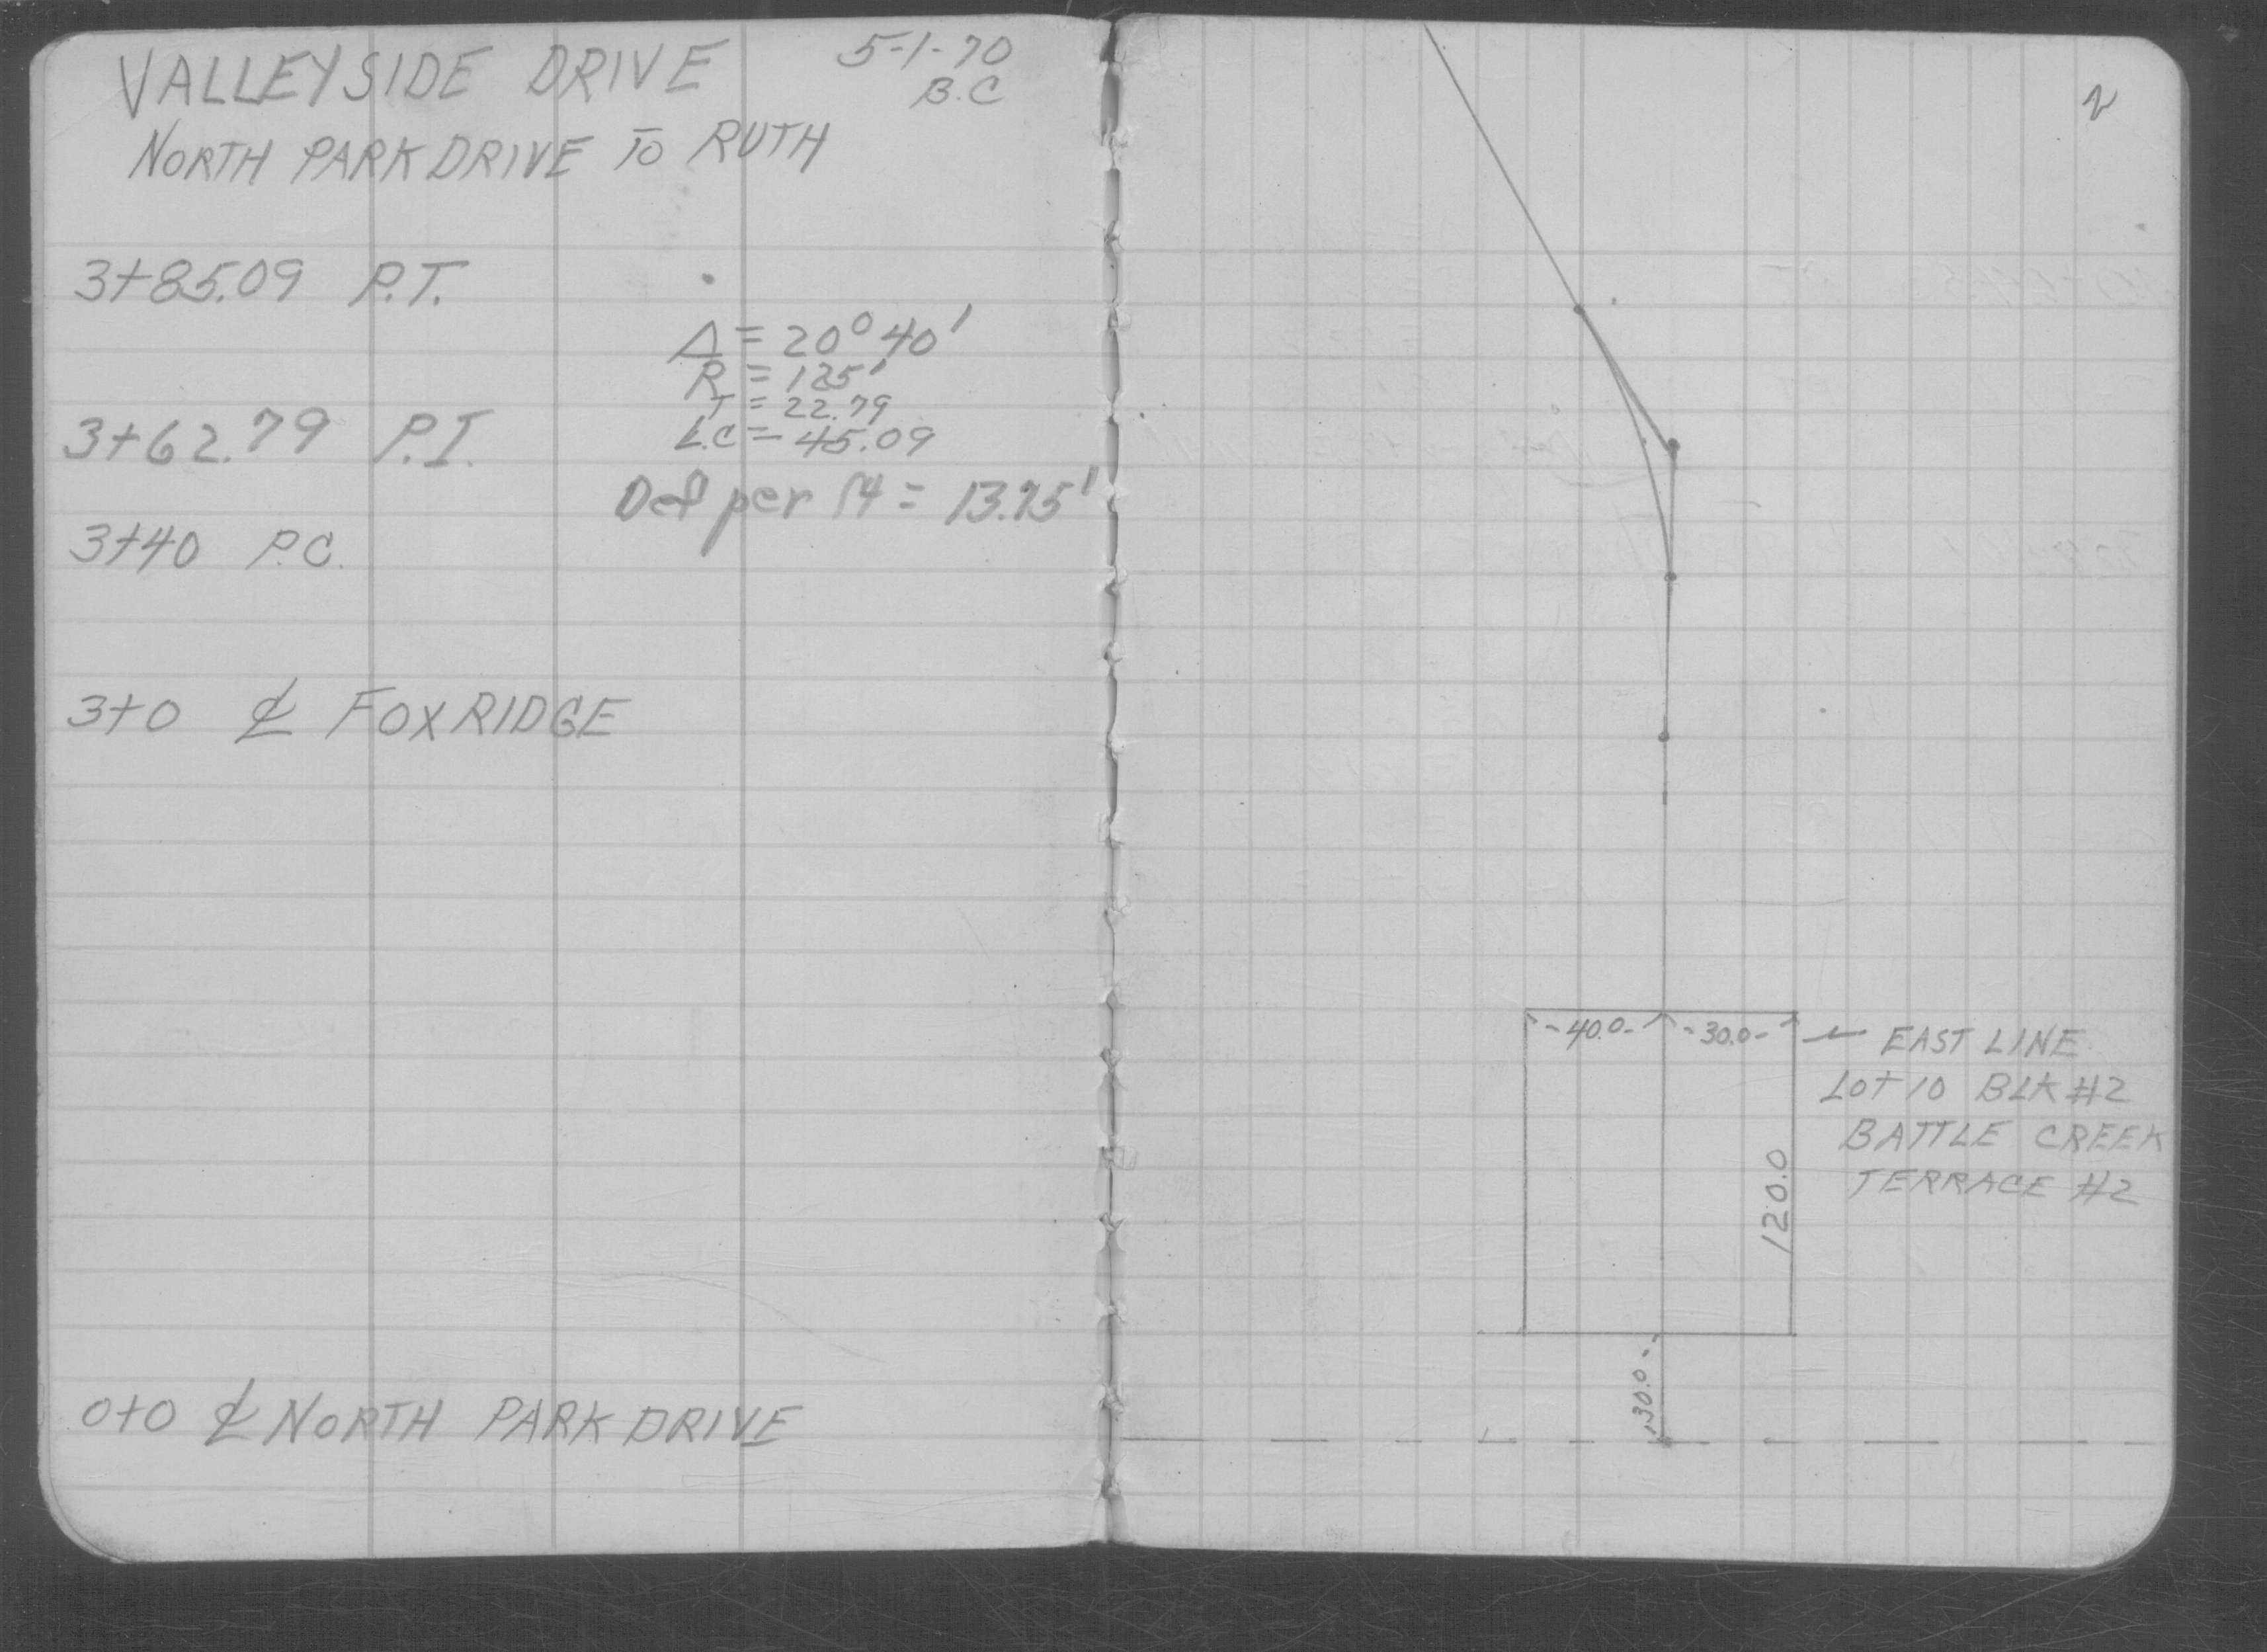 VALLEYSIDE DRIVE 5-1-70
B.C
NORTH PARK DRIVE TO RUTH
3+85.09 P.T.
Δ = 20° 40'
R = 125'
T = 22.79
L.C = 45.09
3+62.79 P.I.
Def per ft = 13.75'
3+40 P.C.
3+0 ℄ FOXRIDGE
0+0 ℄ NORTH PARK DRIVE
2
40.0 30.0 EAST LINE
LOT 10 BLK #2
BATTLE CREEK
TERRACE #2
120.0
30.0